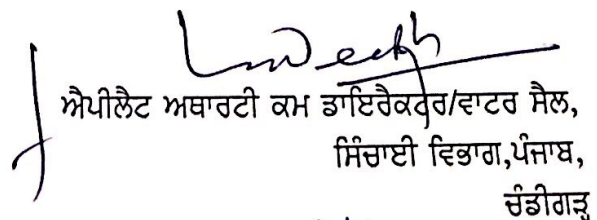 ਐਪੀਲੈਟ ਅਥਾਰਟੀ ਕਮ ਡਾਇਰੈਕਟਰ/ਵਾਟਰ ਸੈਲ,
ਸਿੰਚਾਈ ਵਿਭਾਗ,ਪੰਜਾਬ,
ਚੰਡੀਗੜ੍ਹ